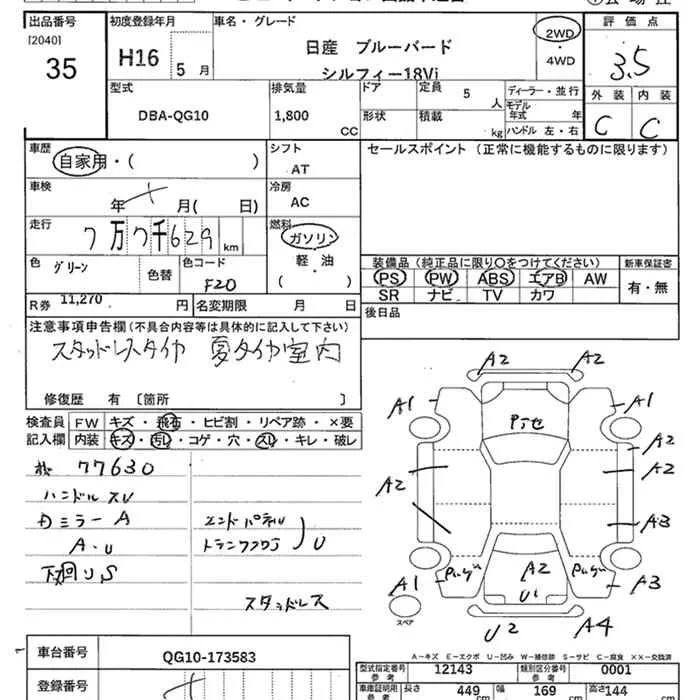 出品番号
[2040]
35
初度登録年月
H16 5月
車名・グレード
日産 ブルーバード
シルフィー18Vi
2WD
・
4WD
評価点
3.5
外装 内装
C C
型式
DBA-QG10
排気量
1,800 CC
ドア
形状
定員 5 人
積載 kg
ディーラー・並行
モデル年式 年
ハンドル 左・右
車歴
自家用・( )
シフト
AT
セールスポイント (正常に機能するものに限ります)
車検
年 月( 日)
冷房
AC
走行
7万7千629 km
燃料
ガソリン
軽・油
( )
色
グリーン
色替
色コード
F20
装備品 (純正品に限り○をつけてください)
新車保証書
PS PW ABS エアB AW
SR ナビ TV カワ
有・無
R券 11,270 円
名変期限 月 日
後日品
注意事項申告欄(不具合内容等は具体的に記入して下さい)
スタッドレスタイヤ 夏タイヤ室内
修復歴 有 〔箇所 〕
検査員
記入欄
FW キズ・飛石・ヒビ割・リペア跡・×要
内装 キズ・汚レ・コゲ・穴・スレ・キレ・破レ
77630
ハンドルスレ
ミラーA
A・U
下廻りS
エンドパネル
トランクフロア
U
スタッドレス
A2 A2
A1 A1
A2
A2 A2
A3
A2
U1
A1 A3
U2 A4
スペア
A-キズ E-エクボ U-凹み W-補修跡 S-サビ C-腐食 XX-交換済
車台番号
QG10-173583
登録番号
型式指定番号
参考
12143
類別区分番号
参考
0001
車庫証明用
参考
長さ 449 cm
幅 169 cm
高さ 146 cm